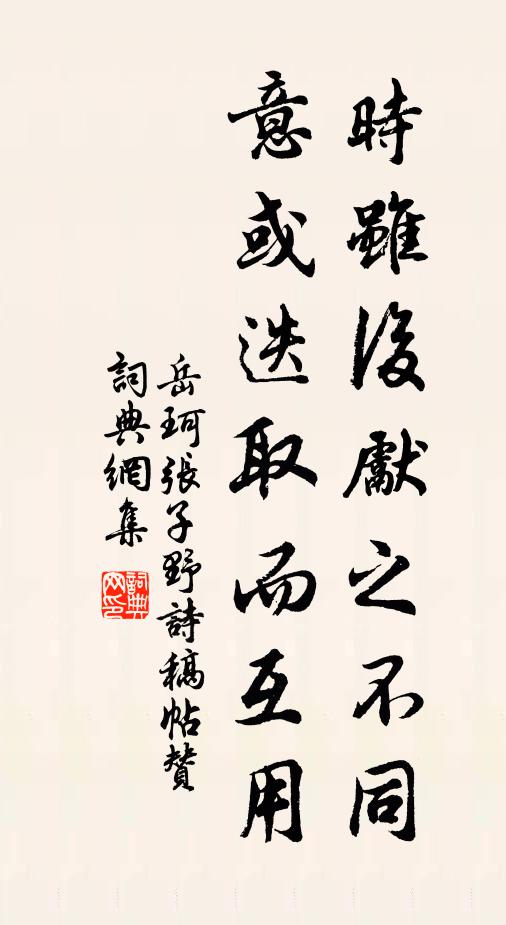 時雖後獻之不同
意或迭取而互用
岳珂張子野詩稿帖贊
詞典網集
詞典
网印